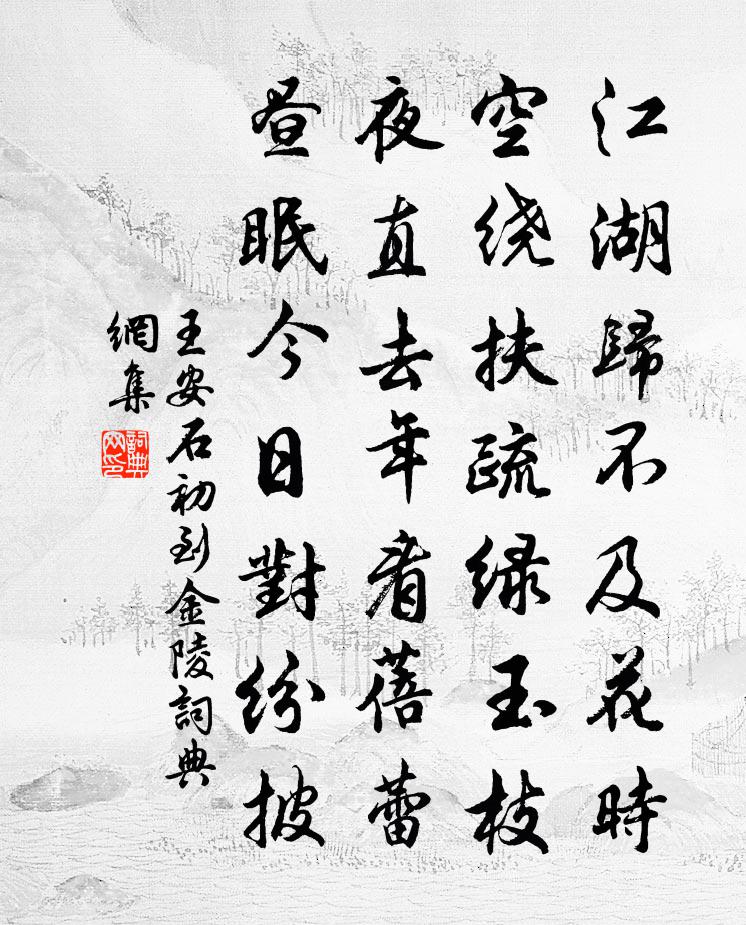 江湖歸不及花時
空绕扶疏绿玉枝
夜直去年看蓓蕾
昼眠今日對纷披
王安石初到金陵詞典
網集
詞典網印